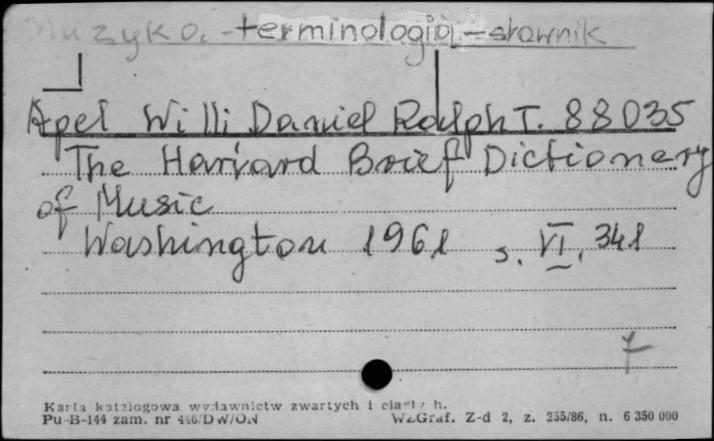 Muzyka - terminologia - słownik
Apel Willi Daniel Ralph T. 88035
The Harvard Brief Dictionary
of Music
Washington 1961 s. VI, 341
7
Karta katalogowa wydawnictw zwartych i
Pu-B-144 zam. nr WZGraf. Z-d 2, z. 255/86, n. 6 350 000